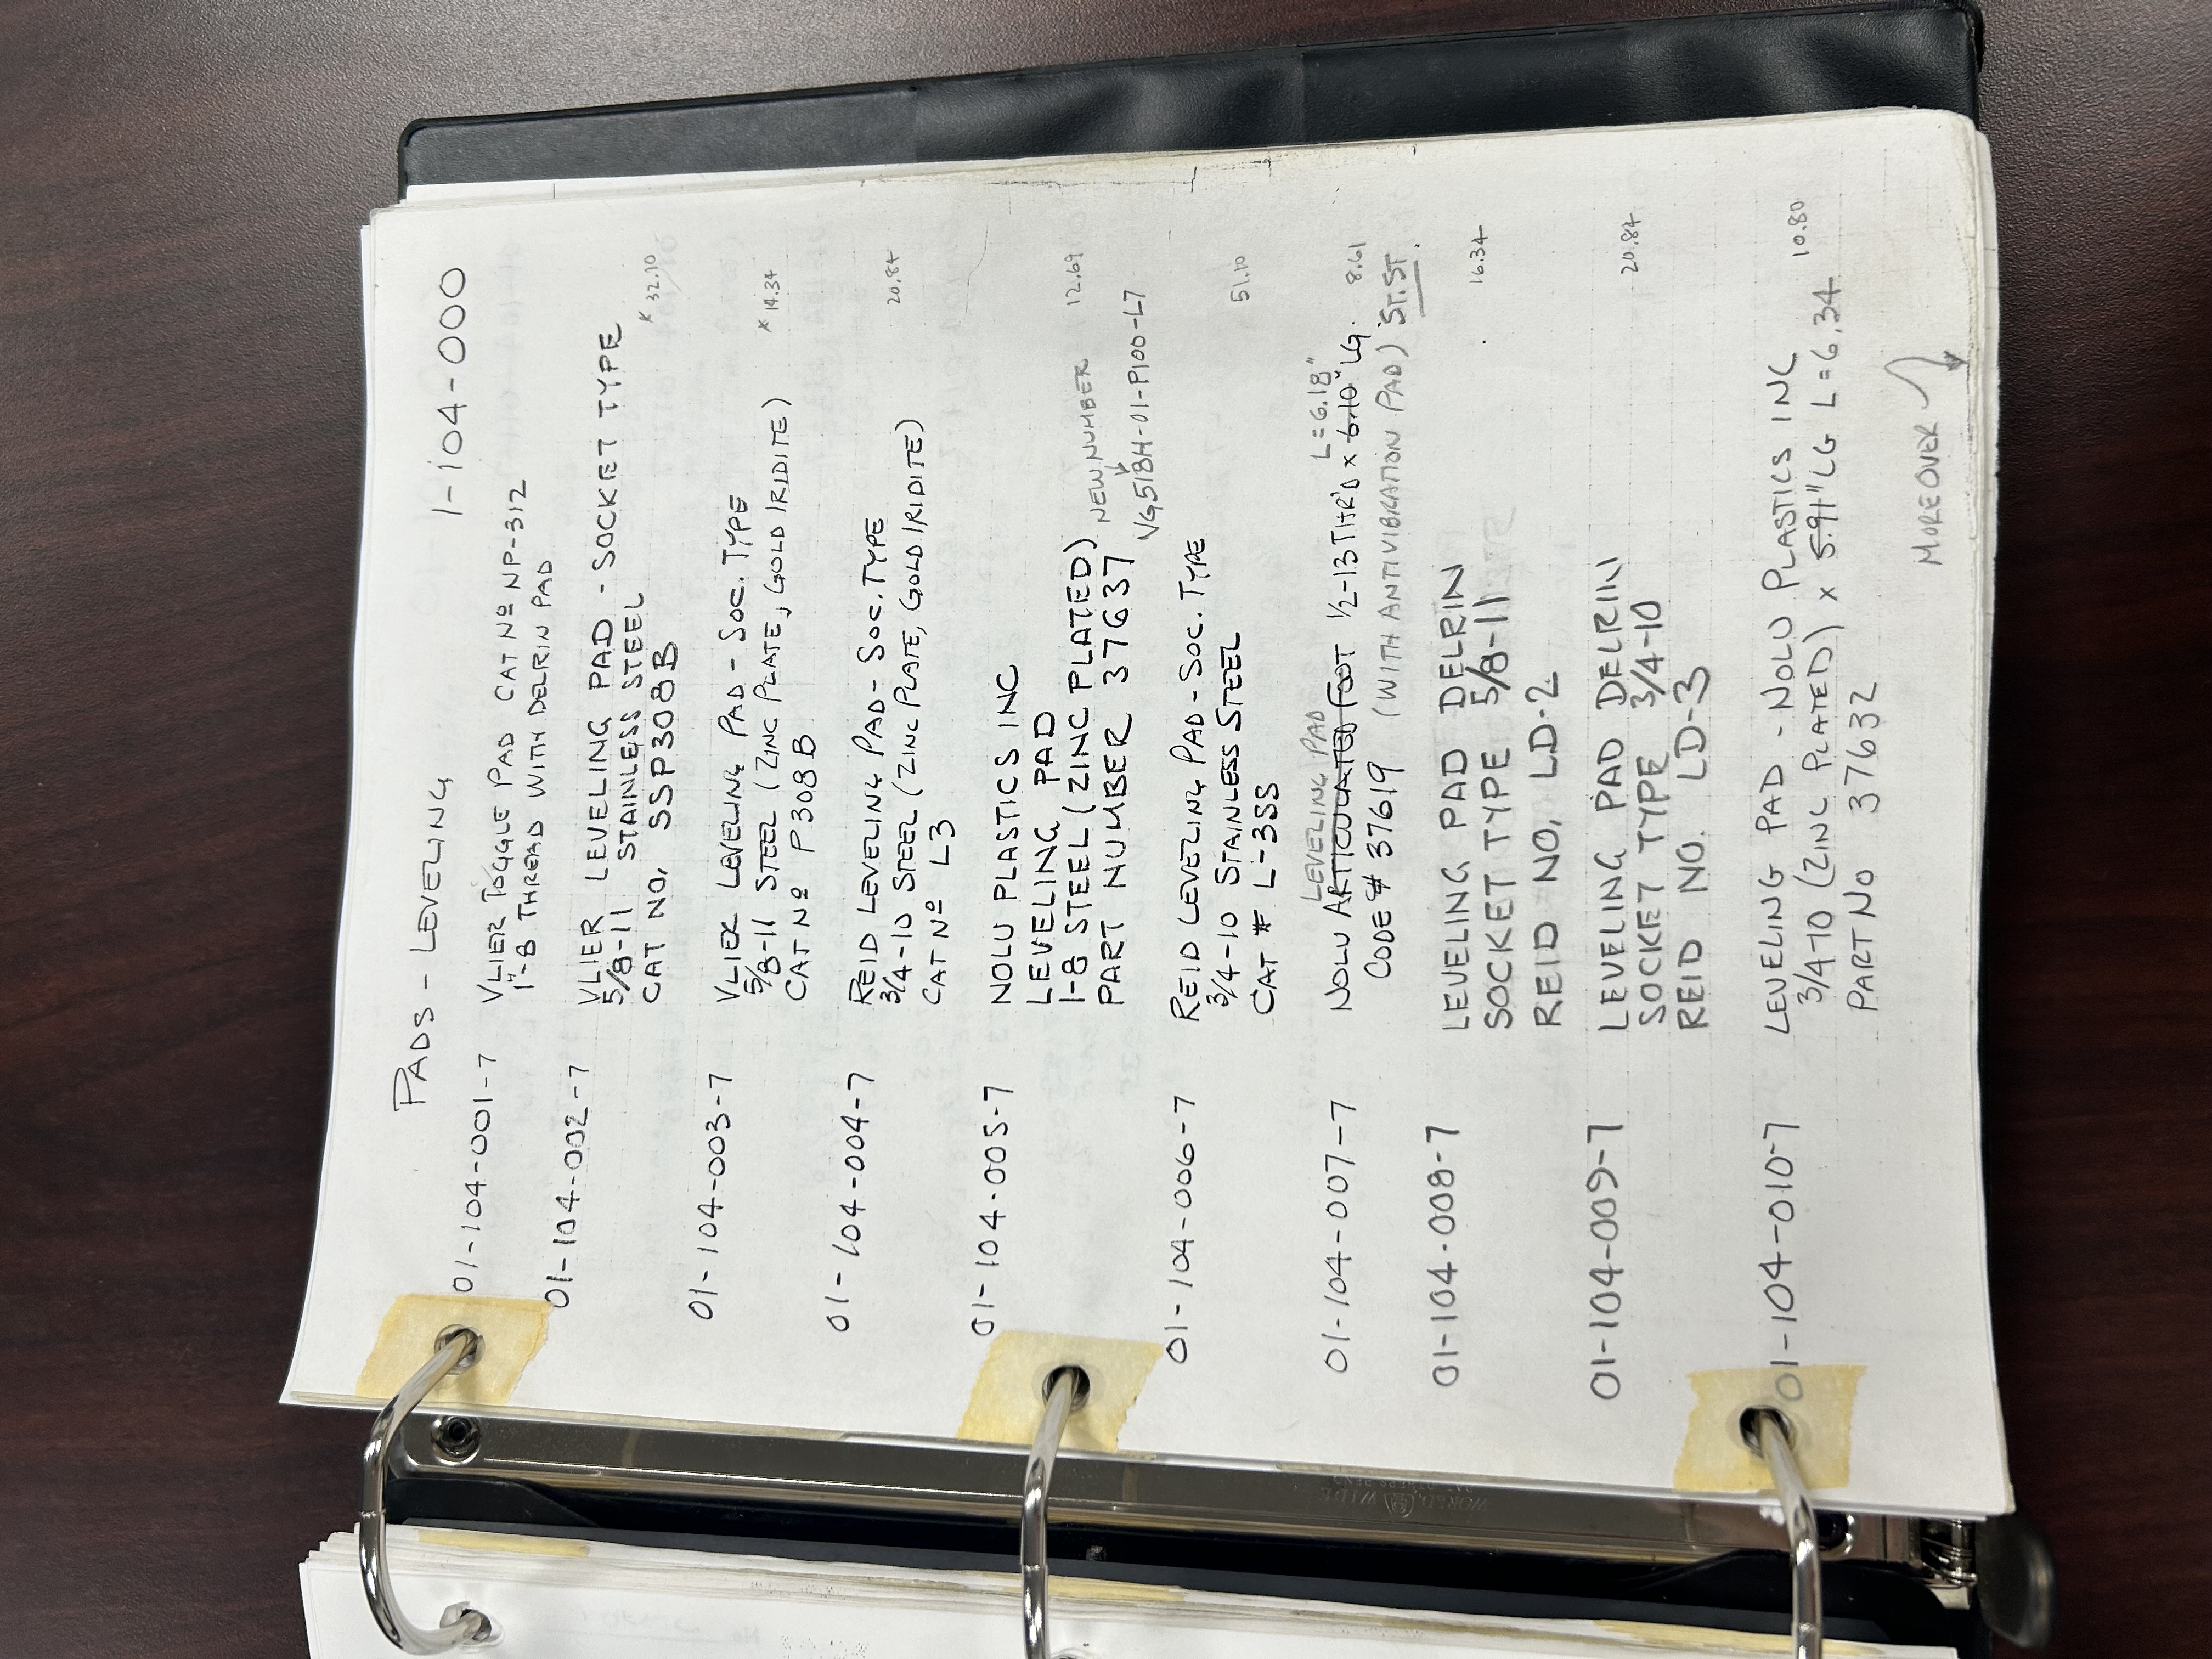 PADS - LEVELING
1-104-000
01-104-001-7 VLIER TOGGLE PAD CAT Nº NP-312
1"-8 THREAD WITH DELRIN PAD
01-104-002-7 VLIER LEVELING PAD - SOCKET TYPE
5/8-11 STAINLESS STEEL
CAT NO, SSP308B * 32.10
01-104-003-7 VLIER LEVELING PAD - SOC. TYPE
5/8-11 STEEL (ZINC PLATE, GOLD IRIDITE) * 14.34
CAT Nº P308B
01-104-004-7 REID LEVELING PAD - SOC. TYPE
3/4-10 STEEL (ZINC PLATE, GOLD IRIDITE) 20.84
CAT Nº L3
01-104-005-7 NOLU PLASTICS INC
LEVELING PAD
1-8 STEEL (ZINC PLATED) NEW NUMBER 12.69
PART NUMBER 37637
VG518H-01-P100-L7
01-104-006-7 REID LEVELING PAD - SOC. TYPE
3/4-10 STAINLESS STEEL 51.10
CAT # L-3SS
LEVELING PAD L = 6.18"
01-104-007-7 NOLU ARTICULATED FOOT 1/2-13 THR'D x 6.10" LG. 8.61
CODE # 37619 (WITH ANTIVIBRATION PAD) ST. ST.
01-104-008-7 LEVELING PAD DELRIN
SOCKET TYPE 5/8-11 16.34
REID NO, LD-2
01-104-009-7 LEVELING PAD DELRIN
SOCKET TYPE 3/4-10 20.84
REID NO. LD-3
01-104-010-7 LEVELING PAD - NOLU PLASTICS INC
3/4-10 (ZINC PLATED) x 5.91" LG L = 6.34 10.80
PART NO 37632
MORE OVER